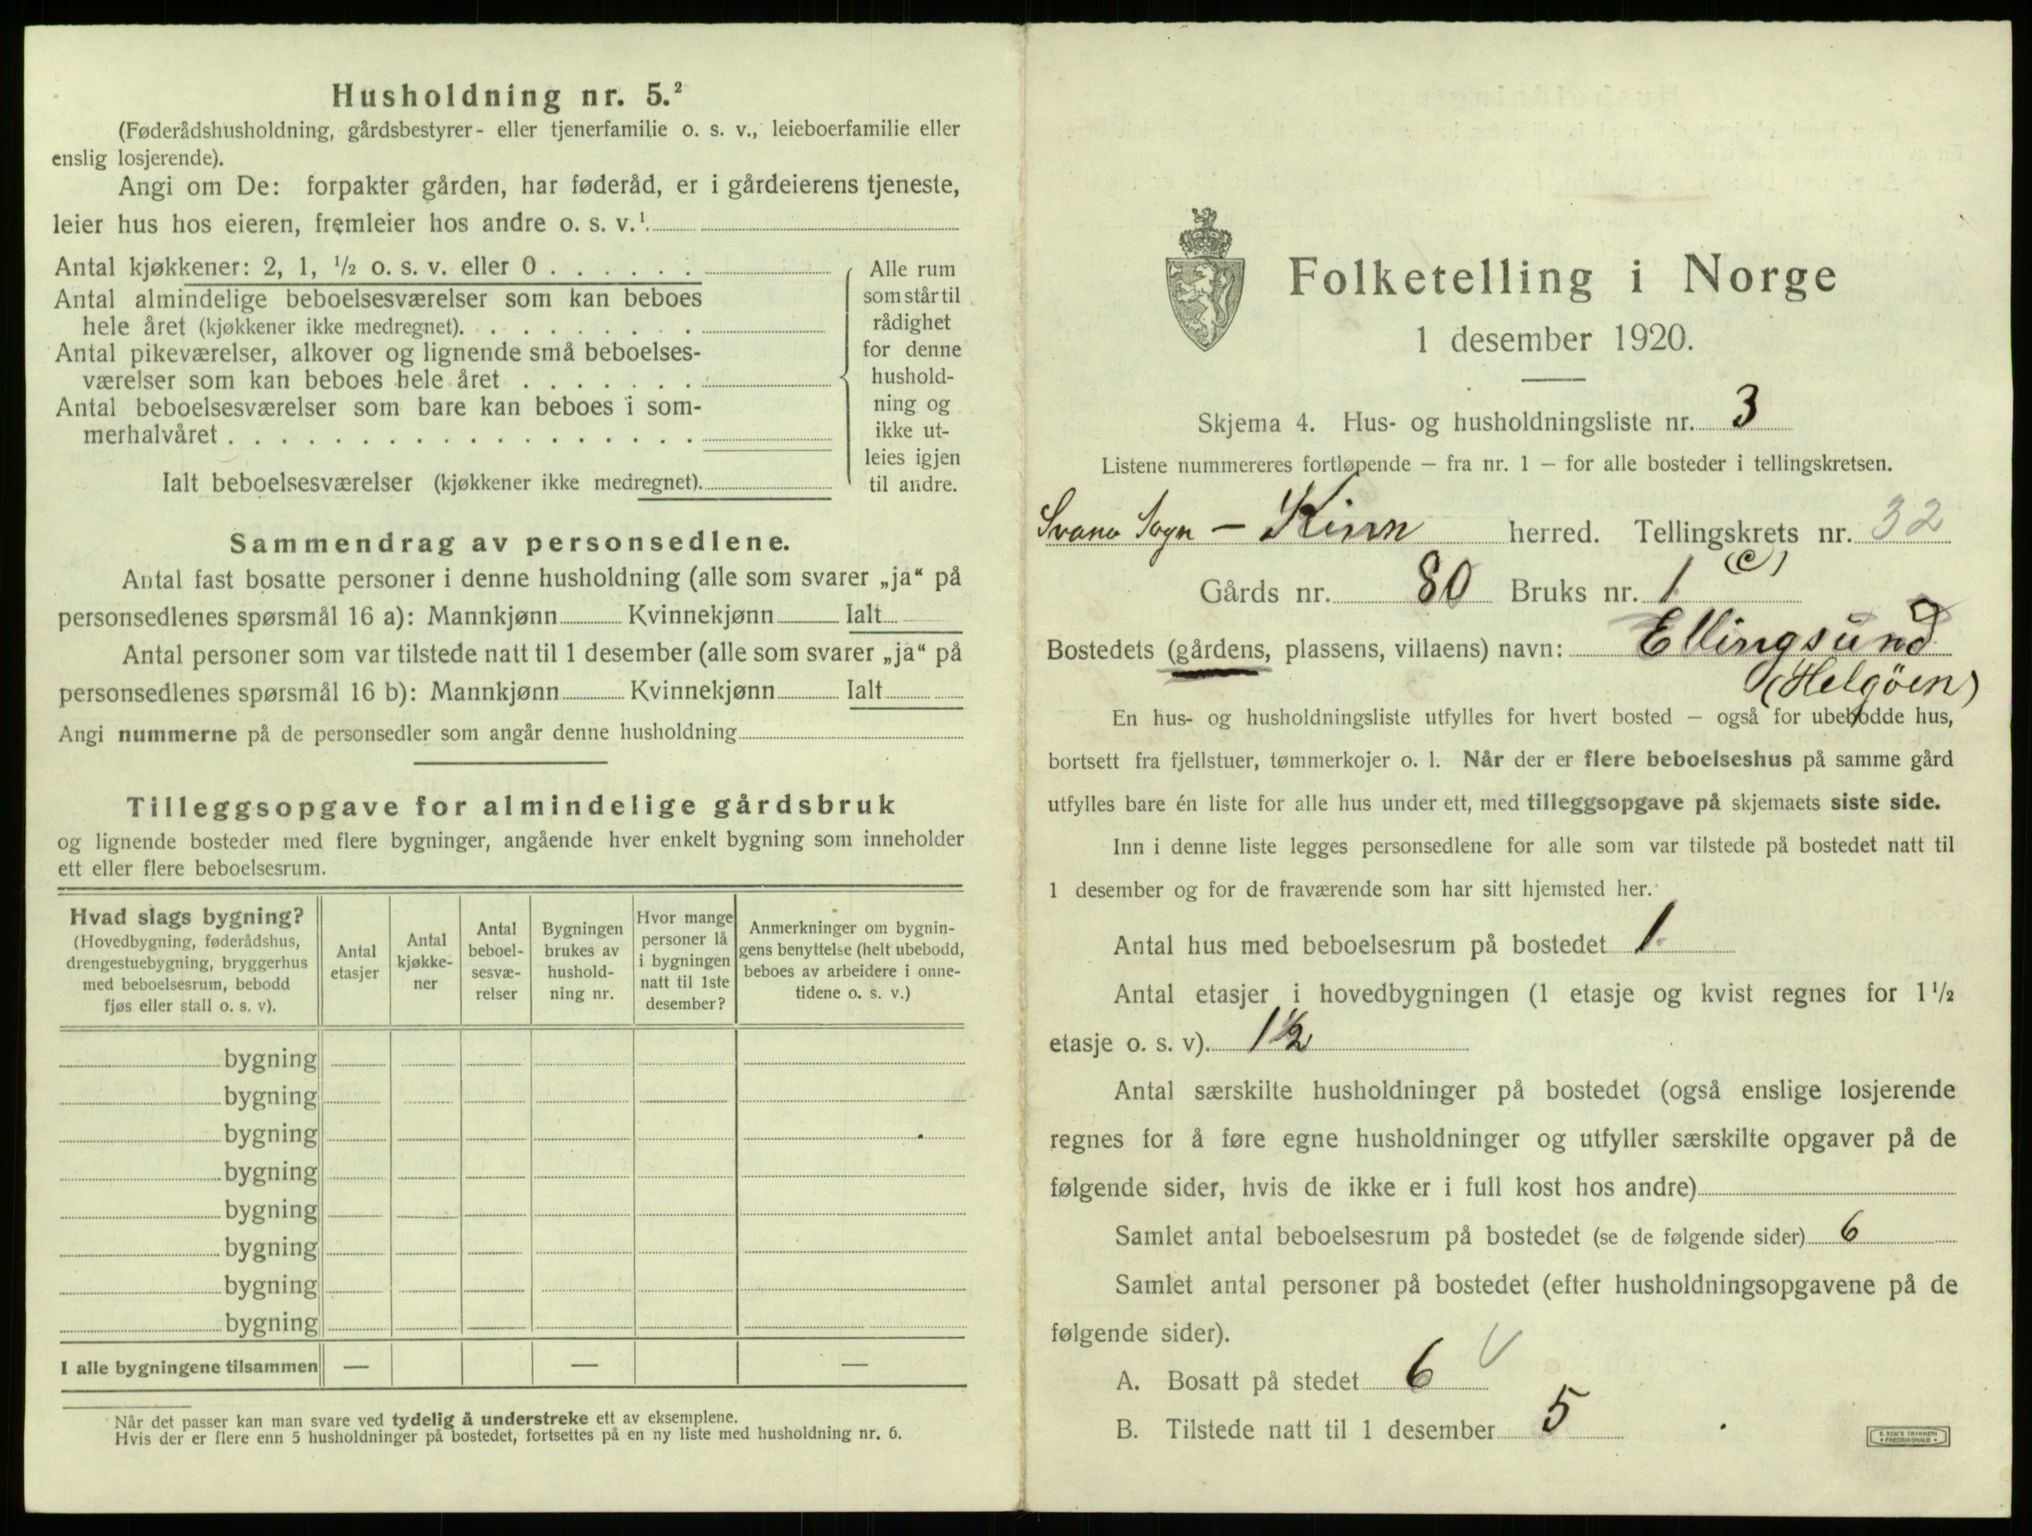 Husholdning nr. 5.²
(Føderådshusholdning, gårdsbestyrer- eller tjenerfamilie o. s. v., leieboerfamilie eller
enslig losjerende).
Angi om De: forpakter gården, har føderåd, er i gårdeierens tjeneste,
leier hus hos eieren, fremleier hos andre o. s. v.¹
Antal kjøkkener: 2, 1, ½ o. s. v. eller 0 . . . . . .
Antal almindelige beboelsesværelser som kan beboes
hele året (kjøkkener ikke medregnet). . . . . . . . .
Antal pikeværelser, alkover og lignende små beboelses-
værelser som kan beboes hele året . . . . . . .
Antal beboelsesværelser som bare kan beboes i som-
merhalvåret . . . . . . . . . . . . . . . . . .
Ialt beboelsesværelser (kjøkkener ikke medregnet).
Alle rum
som står til
rådighet
for denne
hushold-
ning og
ikke ut-
leies igjen
til andre.
Sammendrag av personsedlene.
Antal fast bosatte personer i denne husholdning (alle som svarer „ja“ på
personsedlenes spørsmål 16 a): Mannkjønn Kvinnekjønn Ialt
Antal personer som var tilstede natt til 1 desember (alle som svarer „ja“ på
personsedlenes spørsmål 16 b): Mannkjønn Kvinnekjønn Ialt
Angi nummerne på de personsedler som angår denne husholdning
Tilleggsopgave for almindelige gårdsbruk
og lignende bosteder med flere bygninger, angående hver enkelt bygning som inneholder
ett eller flere beboelsesrum.
Hvad slags bygning?
(Hovedbygning, føderådshus,
drengestuebygning, bryggerhus
med beboelsesrum, bebodd
fjøs eller stall o. s. v).
Antal
etasjer
Antal
kjøkke-
ner
Antal
beboel-
sesvæ-
relser
Bygningen
brukes av
hushold-
ning nr.
Hvor mange
personer lå
i bygningen
natt til 1ste
desember?
Anmerkninger om bygnin-
gens benyttelse (helt ubebodd,
beboes av arbeidere i onne-
tidene o. s. v.)
bygning
bygning
bygning
bygning
bygning
bygning
bygning
bygning
I alle bygningene tilsammen — — —
Når det passer kan man svare ved tydelig å understreke ett av eksemplene.
Hvis der er flere enn 5 husholdninger på bostedet, fortsettes på en ny liste med husholdning nr. 6.
Folketelling i Norge
1 desember 1920.
Skjema 4. Hus- og husholdningsliste nr. 3
Listene nummereres fortløpende – fra nr. 1 – for alle bosteder i tellingskretsen.
Svanø Sogn – Kinn herred. Tellingskrets nr. 32
Gårds nr. 80 Bruks nr. 1 (c)
Bostedets (gårdens, plassens, villaens) navn: Ellingsund
(Helgöen)
En hus- og husholdningsliste utfylles for hvert bosted – også for ubebodde hus,
bortsett fra fjellstuer, tømmerkojer o. l. Når der er flere beboelseshus på samme gård
utfylles bare én liste for alle hus under ett, med tilleggsopgave på skjemaets siste side.
Inn i denne liste legges personsedlene for alle som var tilstede på bostedet natt til
1 desember og for de fraværende som har sitt hjemsted her.
Antal hus med beboelsesrum på bostedet 1
Antal etasjer i hovedbygningen (1 etasje og kvist regnes for 1½
etasje o. s. v). 1½
Antal særskilte husholdninger på bostedet (også enslige losjerende
regnes for å føre egne husholdninger og utfyller særskilte opgaver på de
følgende sider, hvis de ikke er i full kost hos andre)
Samlet antal beboelsesrum på bostedet (se de følgende sider) 6
Samlet antal personer på bostedet (efter husholdningsopgavene på de
følgende sider).
A. Bosatt på stedet 6
B. Tilstede natt til 1 desember 5
E. SEM'S TRYKKERI
FREDRIKSHALD